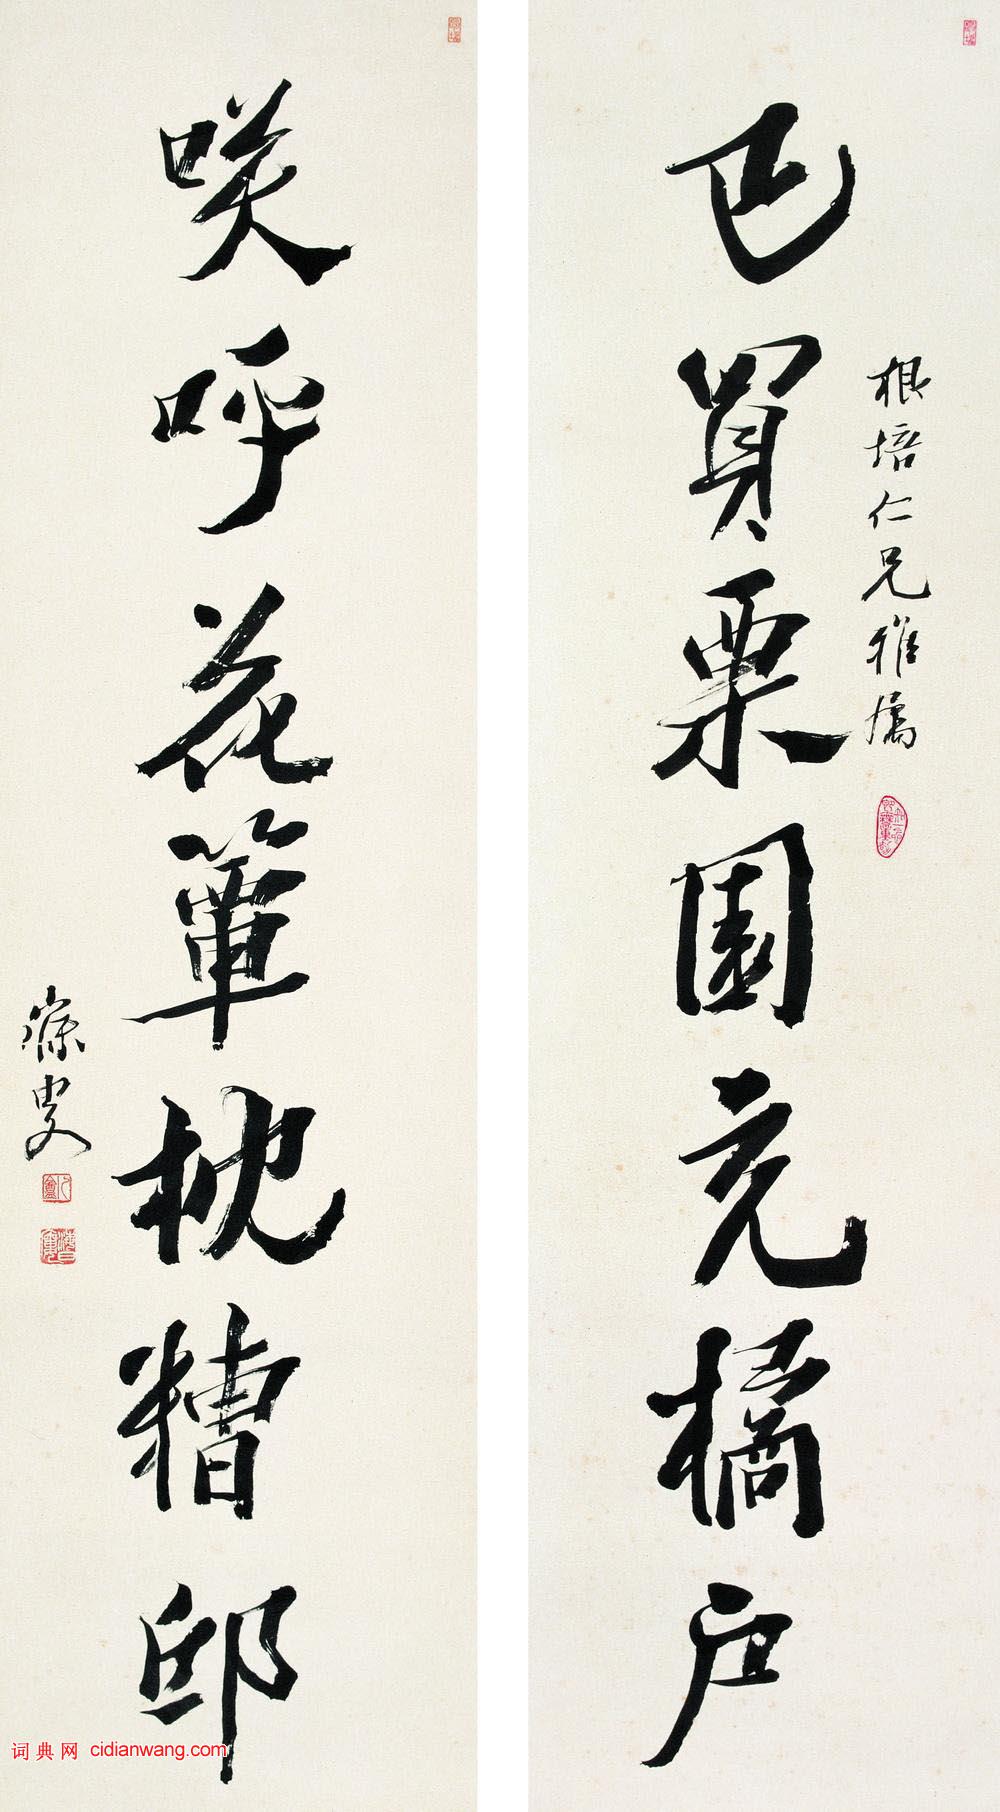 根培仁兄雅属
已買栗園充橘户
咲呼花簟枕糟邱
寐叟
词典网 cidianwang.com